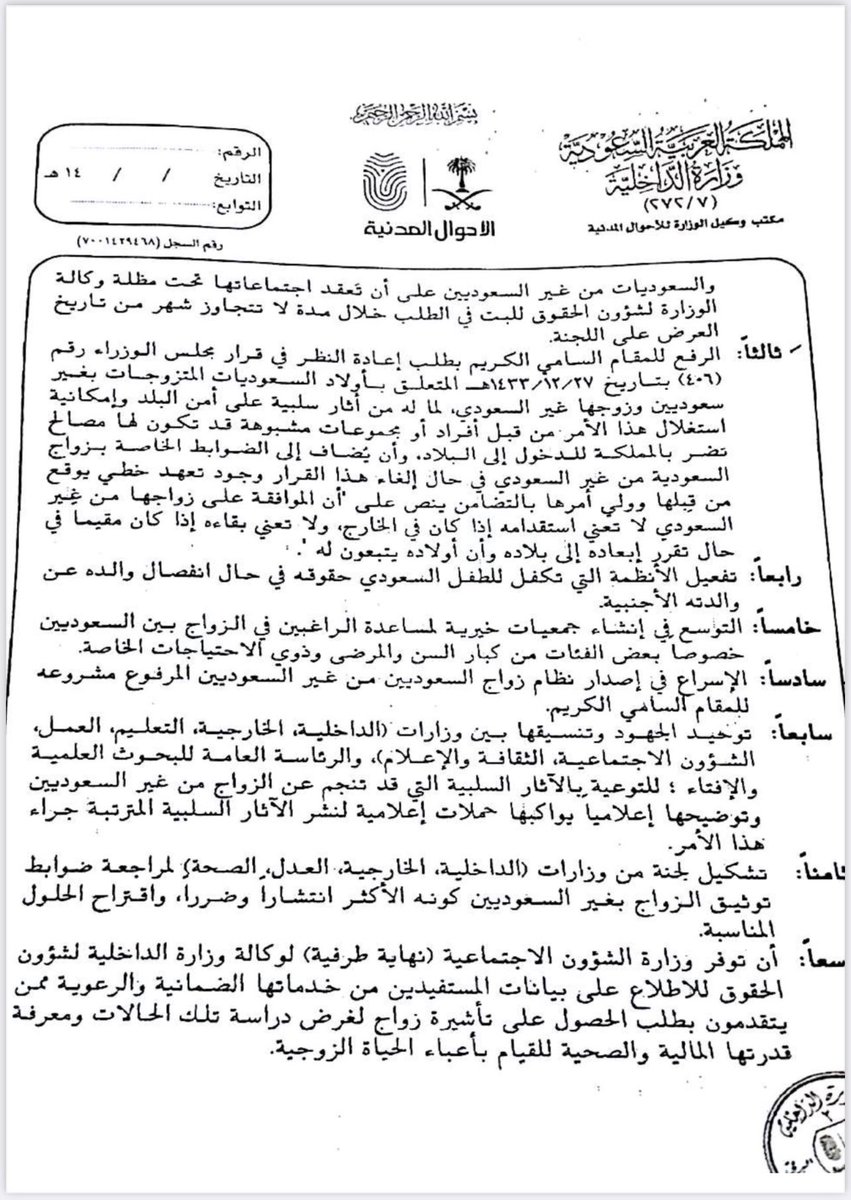 بسم الله الرحمن الرحيم
المملكة العربية السعودية
وزارة الداخلية
(٢٧٢/٧)
مكتب وكيل الوزارة للأحوال المدنية
الاحوال المدنية
الرقم:
التاريخ / / ١٤ هـ
التوابع:
رقم السجل (٧٠٠١٤٢٩٤٦٨)
والسعوديات من غير السعوديين على أن تَعقد اجتماعاتها تحت مظلة وكالة
الوزارة لشؤون الحقوق للبت في الطلب خلال مدة لا تتجاوز شهر من تاريخ
العرض على اللجنة.
ثالثاً: الرفع للمقام السامي الكريم بطلب إعادة النظر في قرار مجلس الوزراء رقم
(٤٠٦) بتاريخ ١٤٣٣/١٢/٢٧هـ المتعلق بأولاد السعوديات المتزوجات بغير
سعوديين وزوجها غير السعودي، لما له من آثار سلبية على أمن البلد وإمكانية
استغلال هذا الأمر من قبل أفراد أو مجموعات مشبوهة قد تكون لها مصالح
تضر بالمملكة للدخول إلى البلاد، وأن يُضاف إلى الضوابط الخاصة بزواج
السعودية من غير السعودي في حال إلغاء هذا القرار وجود تعهد خطي يوقع
من قِبلها وولي أمرها بالتضامن ينص على "أن الموافقة على زواجها من غير
السعودي لا تعني استقدامه إذا كان في الخارج، ولا تعني بقاءه إذا كان مقيما في
حال تقرر إبعاده إلى بلاده وأن أولاده يتبعون له".
رابعاً: تفعيل الأنظمة التي تكفل للطفل السعودي حقوقه في حال انفصال والده عن
والدته الأجنبية.
خامساً: التوسع في إنشاء جمعيات خيرية لمساعدة الراغبين في الزواج بين السعوديين
خصوصاً بعض الفئات من كبار السن والمرضى وذوي الاحتياجات الخاصة.
سادساً: الإسراع في إصدار نظام زواج السعوديين من غير السعوديين المرفوع مشروعه
للمقام السامي الكريم.
سابعاً: توحيد الجهود وتنسيقها بين وزارات (الداخلية، الخارجية، التعليم، العمل،
الشؤون الاجتماعية، الثقافة والإعلام)، والرئاسة العامة للبحوث العلمية
والإفتاء ؛ للتوعية بالآثار السلبية التي قد تنجم عن الزواج من غير السعوديين
وتوضيحها إعلامياً يواكبها حملات إعلامية لنشر الآثار السلبية المترتبة جراء
هذا الأمر.
ثامناً: تشكيل لجنة من وزارات (الداخلية، الخارجية، العدل، الصحة) لمراجعة ضوابط
توثيق الزواج بغير السعوديين كونه الأكثر انتشاراً وضرراً، واقتراح الحلول
المناسبة.
سعاً: أن توفر وزارة الشؤون الاجتماعية (نهاية طرفية) لوكالة وزارة الداخلية لشؤون
الحقوق للاطلاع على بيانات المستفيدين من خدماتها الضمانية والرعوية ممن
يتقدمون بطلب الحصول على تأشيرة زواج لغرض دراسة تلك الحالات ومعرفة
قدرتها المالية والصحية للقيام بأعباء الحياة الزوجية.